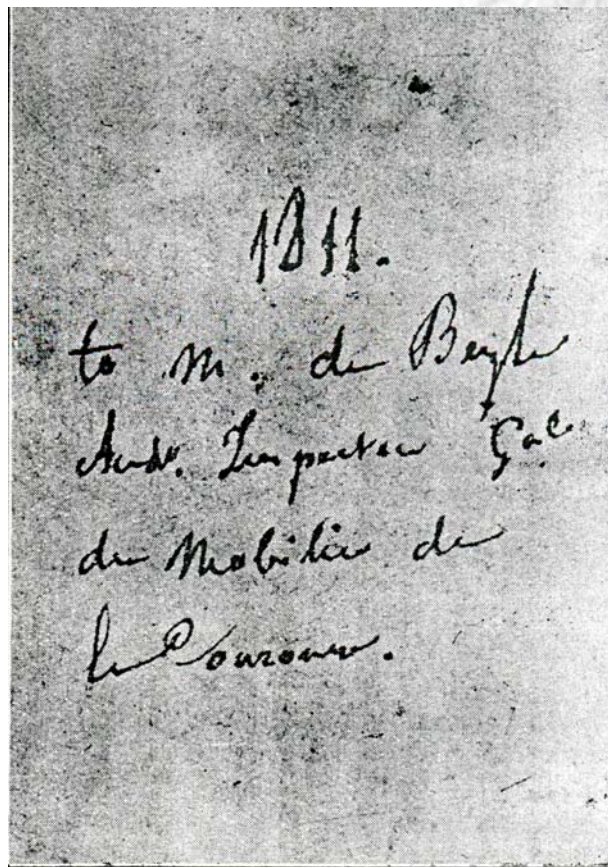 1811.
to M. de Beyle
Audr. Inspecteur Gal.
du Mobilier de
la Couronne.